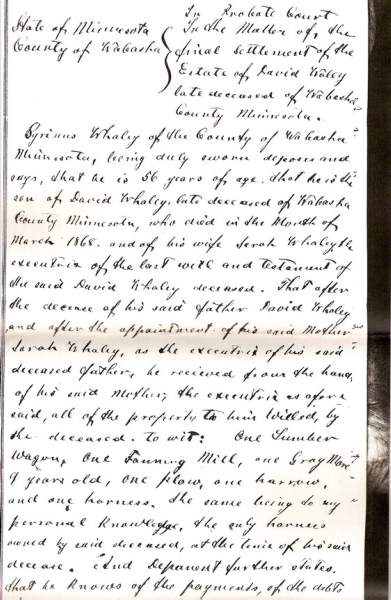 In Probate Court
State of Minnesota
County of Wabasha
In the Matter of, the
final settlement of the
Estate of David Waley
late deceased of Wabasha
County Minnesota.
Syrinus Whaley of the County of Wabasha
Minnesota, being duly sworn deposes and
says, that he is 56 years of age. that he is the
son of David Whaley, late deceased of Wabasha
County Minnesota, who died in the Month of
March 1868. and of his wife Sarah Whaley the
executrix of the last will and testament of
the said David Whaley deceased. That after
the decease of his said father David Whaley
and after the appointment of his said Mother
Sarah Whaley, as the executrix of his said
deceased father, he recieved from the hand,
of his said Mother, the executrix as afore
said, all of the property to him Willed, by
the deceased. to wit: One Lumber
Wagon, One Fanning Mill, one Gray Mare
9 years old, One plow, one harrow,
and one harness. the same being to my
personal Knowledge, the only harness
owned by said deceased, at the time of his said
decease. And Deponent further states.
that he knows of the payments, of the debts